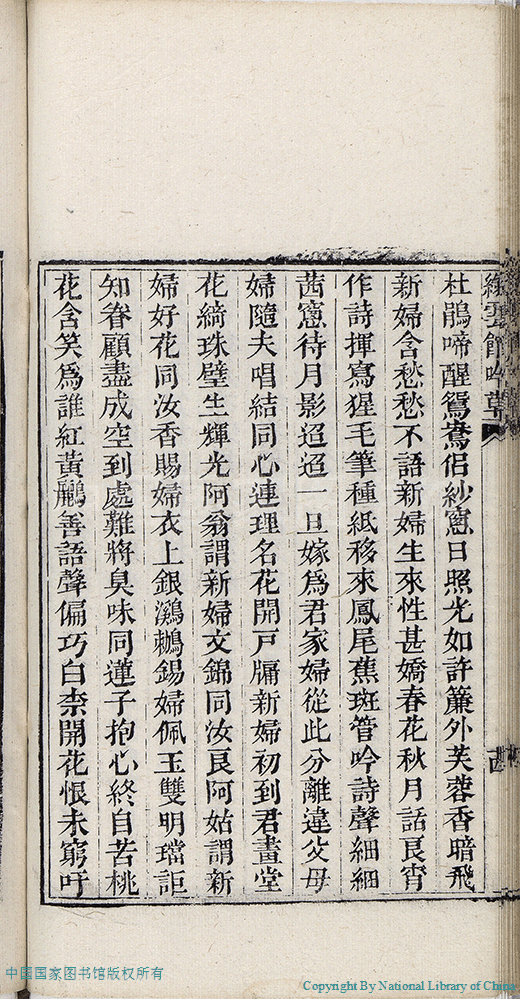 雲館吟草
杜鵑啼醒鴛鴦侶紗窻日照光如許簾外芙蓉香暗飛
新婦含愁愁不語新婦生來性甚嬌春花秋月話良宵
作詩揮寫猩毛筆種紙移來鳳尾蕉斑管吟詩聲細細
茜窻待月影迢迢一旦嫁爲君家婦從此分離違父母
婦隨夫唱結同心連理名花開戸牖新婦初到君畫堂
花綺珠壁生輝光阿翁謂新婦文錦同汝良阿姑謂新
婦好花同汝香賜婦衣上銀鸂鶒錫婦佩玉雙明璫詎
知眷顧盡成空到處難將臭味同蓮子抱心終自苦桃
花含笑爲誰紅黃鸝善語聲偏巧白柰開花恨未窮吁
中国国家图书馆版权所有
Copyright By National Library of China